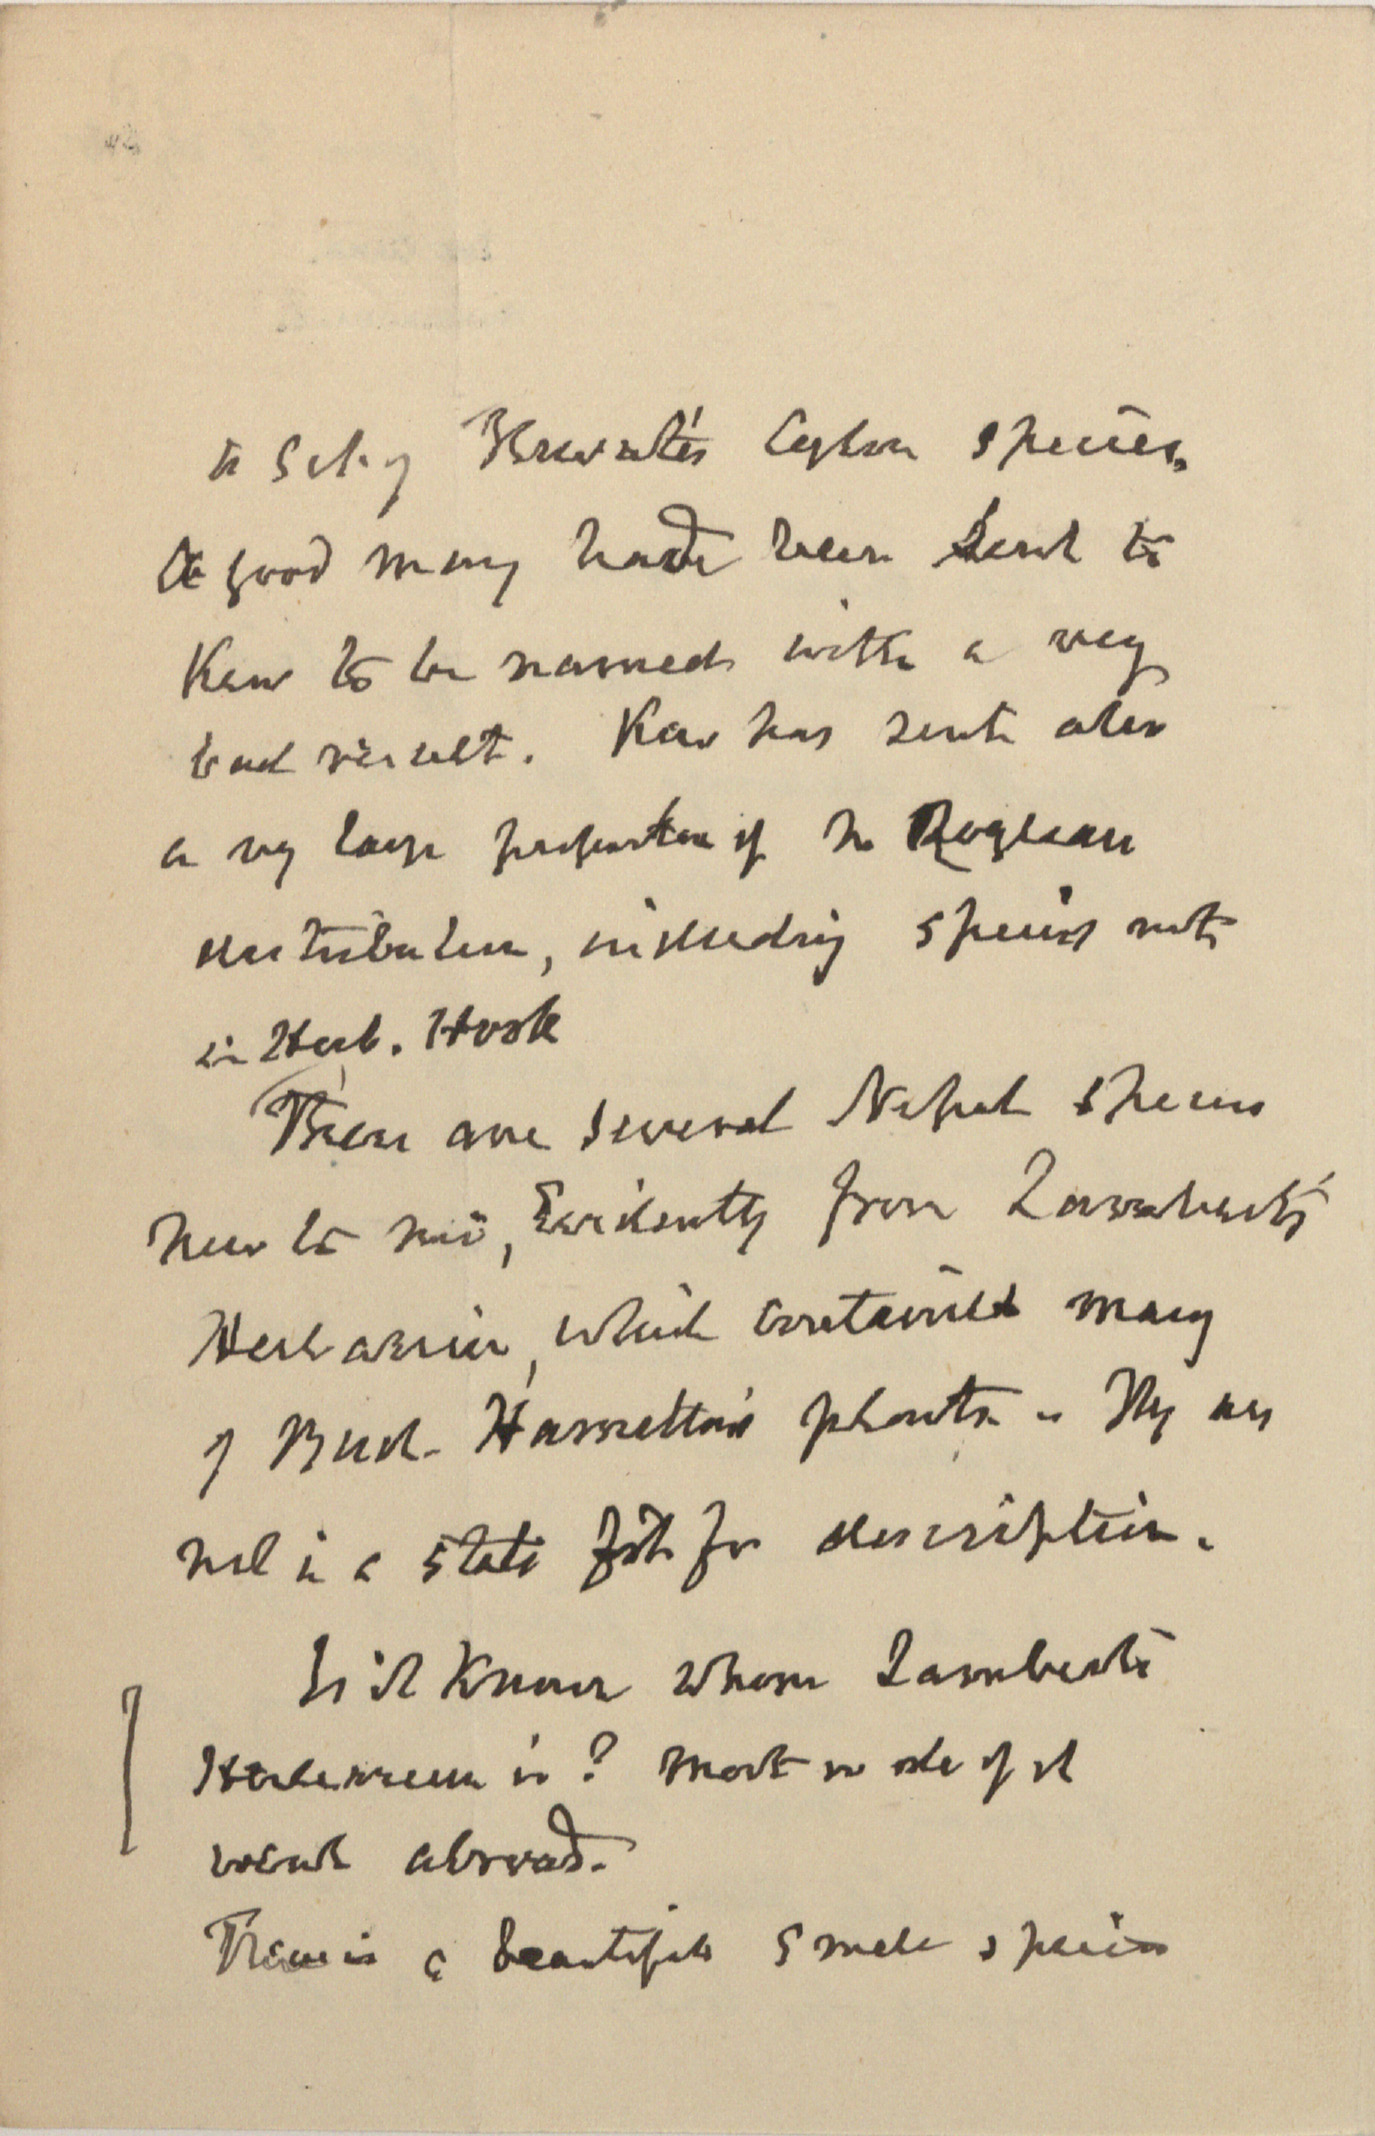 a set of Thwaites's Ceylon species.
A good many have been sent to
Kew to be named with a very
bad result. Kew has sent also
a vy large proportion of the Roylean
distribution, including species not
in Herb. Hook
There are several Nepal species
new to me, Evidently from Lambert's
Herbarium, which contained many
of Buch. Hamilton's plants. They are
not in a state fit for description.
Is it known where Lambert's
Herbarium is? Most of it
went abroad.
There is a beautiful small species